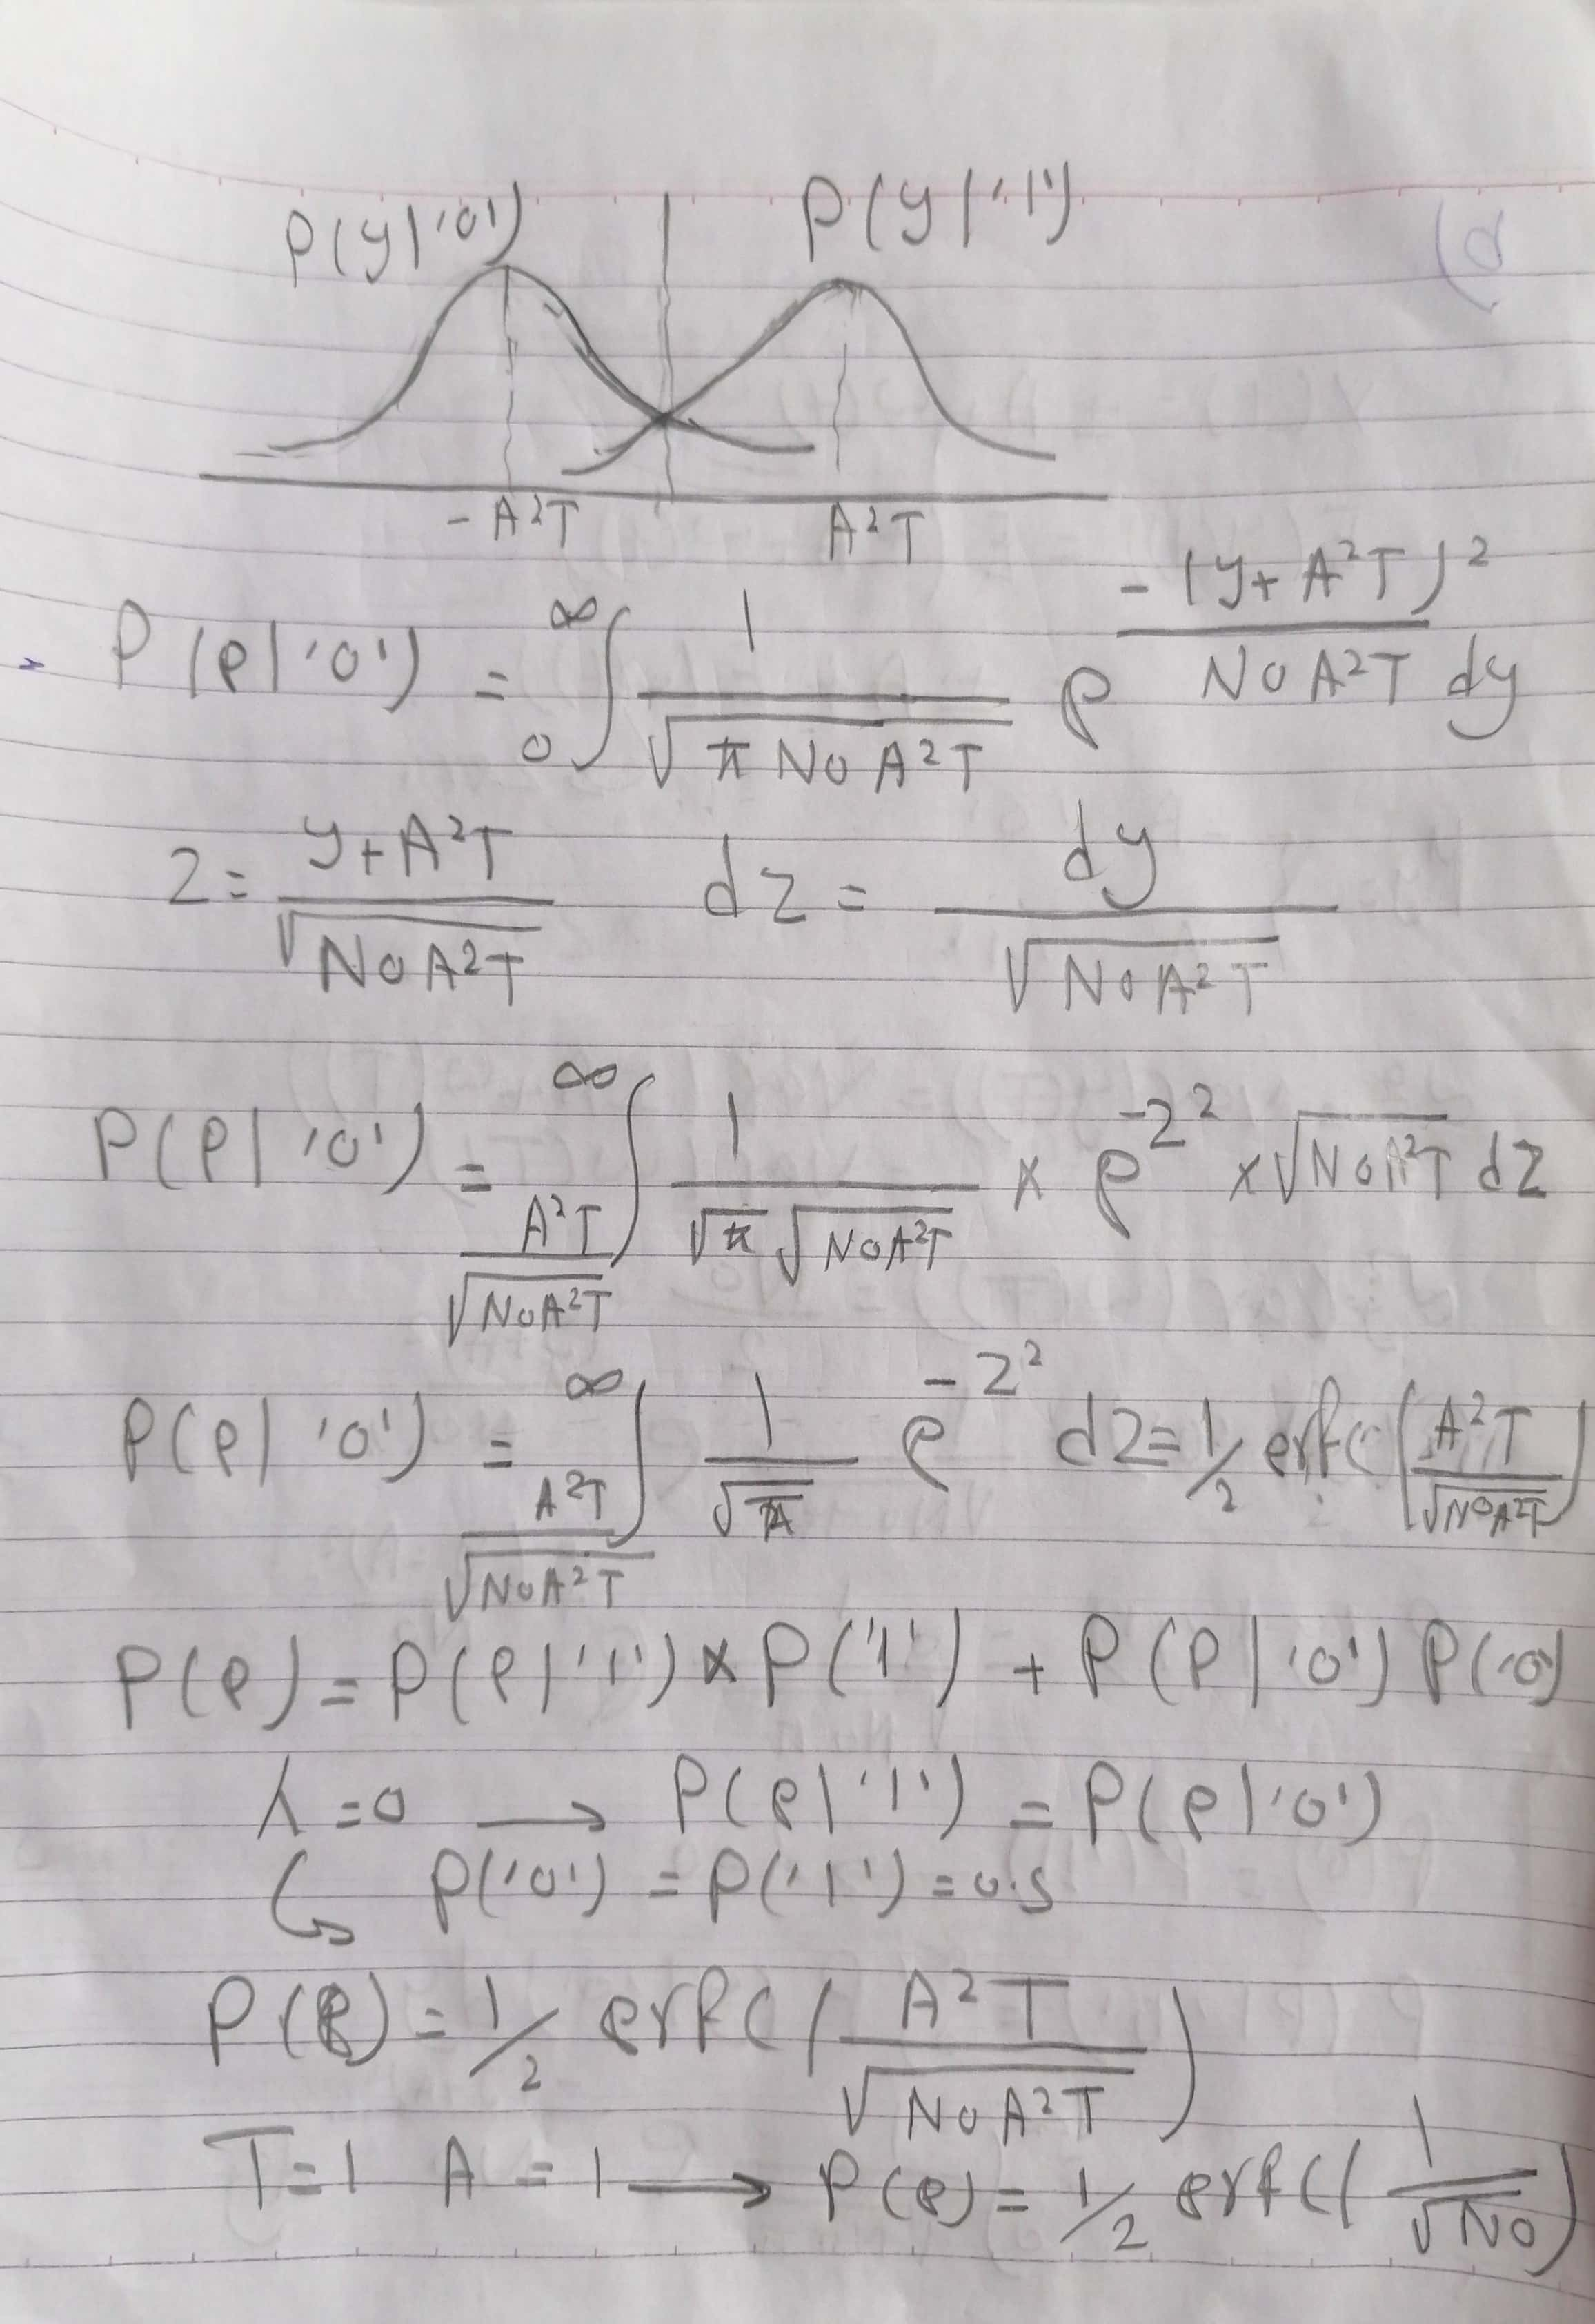 P(y|'0') P(y|'1')
-A²T A²T
P(e|'0') = ∫₀^∞ 1/√(π N0 A²T) e^(-(y+A²T)²/(N0A²T)) dy
Z = (y+A²T)/√(N0A²T) dz = dy/√(N0A²T)
P(e|'0') = ∫_(A²T/√(N0A²T))^∞ 1/(√π √(N0A²T)) × e^(-Z²) × √(N0A²T) dZ
P(e|'0') = ∫_(A²T/√(N0A²T))^∞ 1/√π e^(-Z²) dZ = 1/2 erfc(A²T/√(N0A²T))
P(e) = P(e|'1') × P('1') + P(e|'0') P('0')
λ=0 → P(e|'1') = P(e|'0')
↳ P('0') = P('1') = 0.5
P(e) = 1/2 erfc(A²T/√(N0A²T))
T=1 A=1 → P(e) = 1/2 erfc(1/√N0)